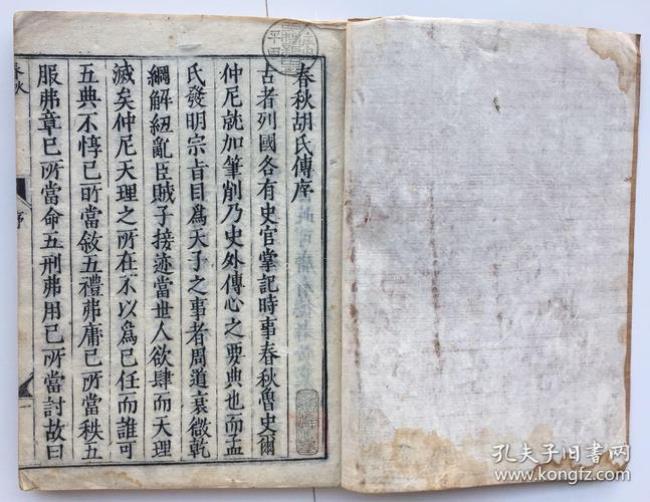 春秋胡氏傳序
古者列國各有史官掌記時事春秋魯史爾
仲尼就加筆削乃史外傳心之要典也而孟
氏發明宗旨目為天子之事者周道衰微乾
綱解紐亂臣賊子接迹當世人欲肆而天理
滅矣仲尼天理之所在不以為已任而誰可
五典不惇已所當敘五禮弗庸已所當秩五
服弗章已所當命五刑弗用已所當討故曰
春秋
序
孔夫子旧书网
www.kongfz.com